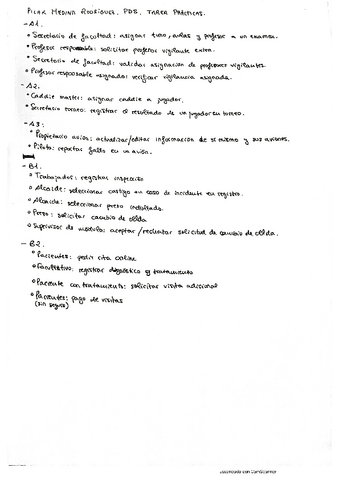 PILAR MEDINA RODRÍGUEZ, PDS, TAREA PRÁCTICAS.
- A1.
• Secretario de facultad: asignar turno, aulas y profesor a un examen.
• Profesor responsable: solicitar profesor vigilante extra.
• Secretario de facultad: validar asignación de profesores vigilantes.
• Profesor responsable asignador verificar vigilancia asignada.
- A2.
• Caddie master: asignar caddie a jugador.
• Secretario torneo: registrar el resultado de un jugador en torneo.
- A3:
• Propietario avión: actualizar/editar información de si mismo y sus aviones.
• Piloto: reportar fallo en un avión.
- B1.
• Trabajador: registrar inspección
• Alcaide: seleccionar castigo en caso de incidente en registro.
• Alcaide: seleccionar preso
• Preso: solicitar cambio de celda
• Supervisor de módulo: aceptar/rechazar solicitud de cambio de celda.
- B2.
• Pacientes: pedir cita online
• Facultativo: registrar diagnóstico y tratamiento
• Paciente con tratamiento: solicitar visita adicional
• Pacientes: pago de visitas
(sin seguro)
Escaneado con CamScanner